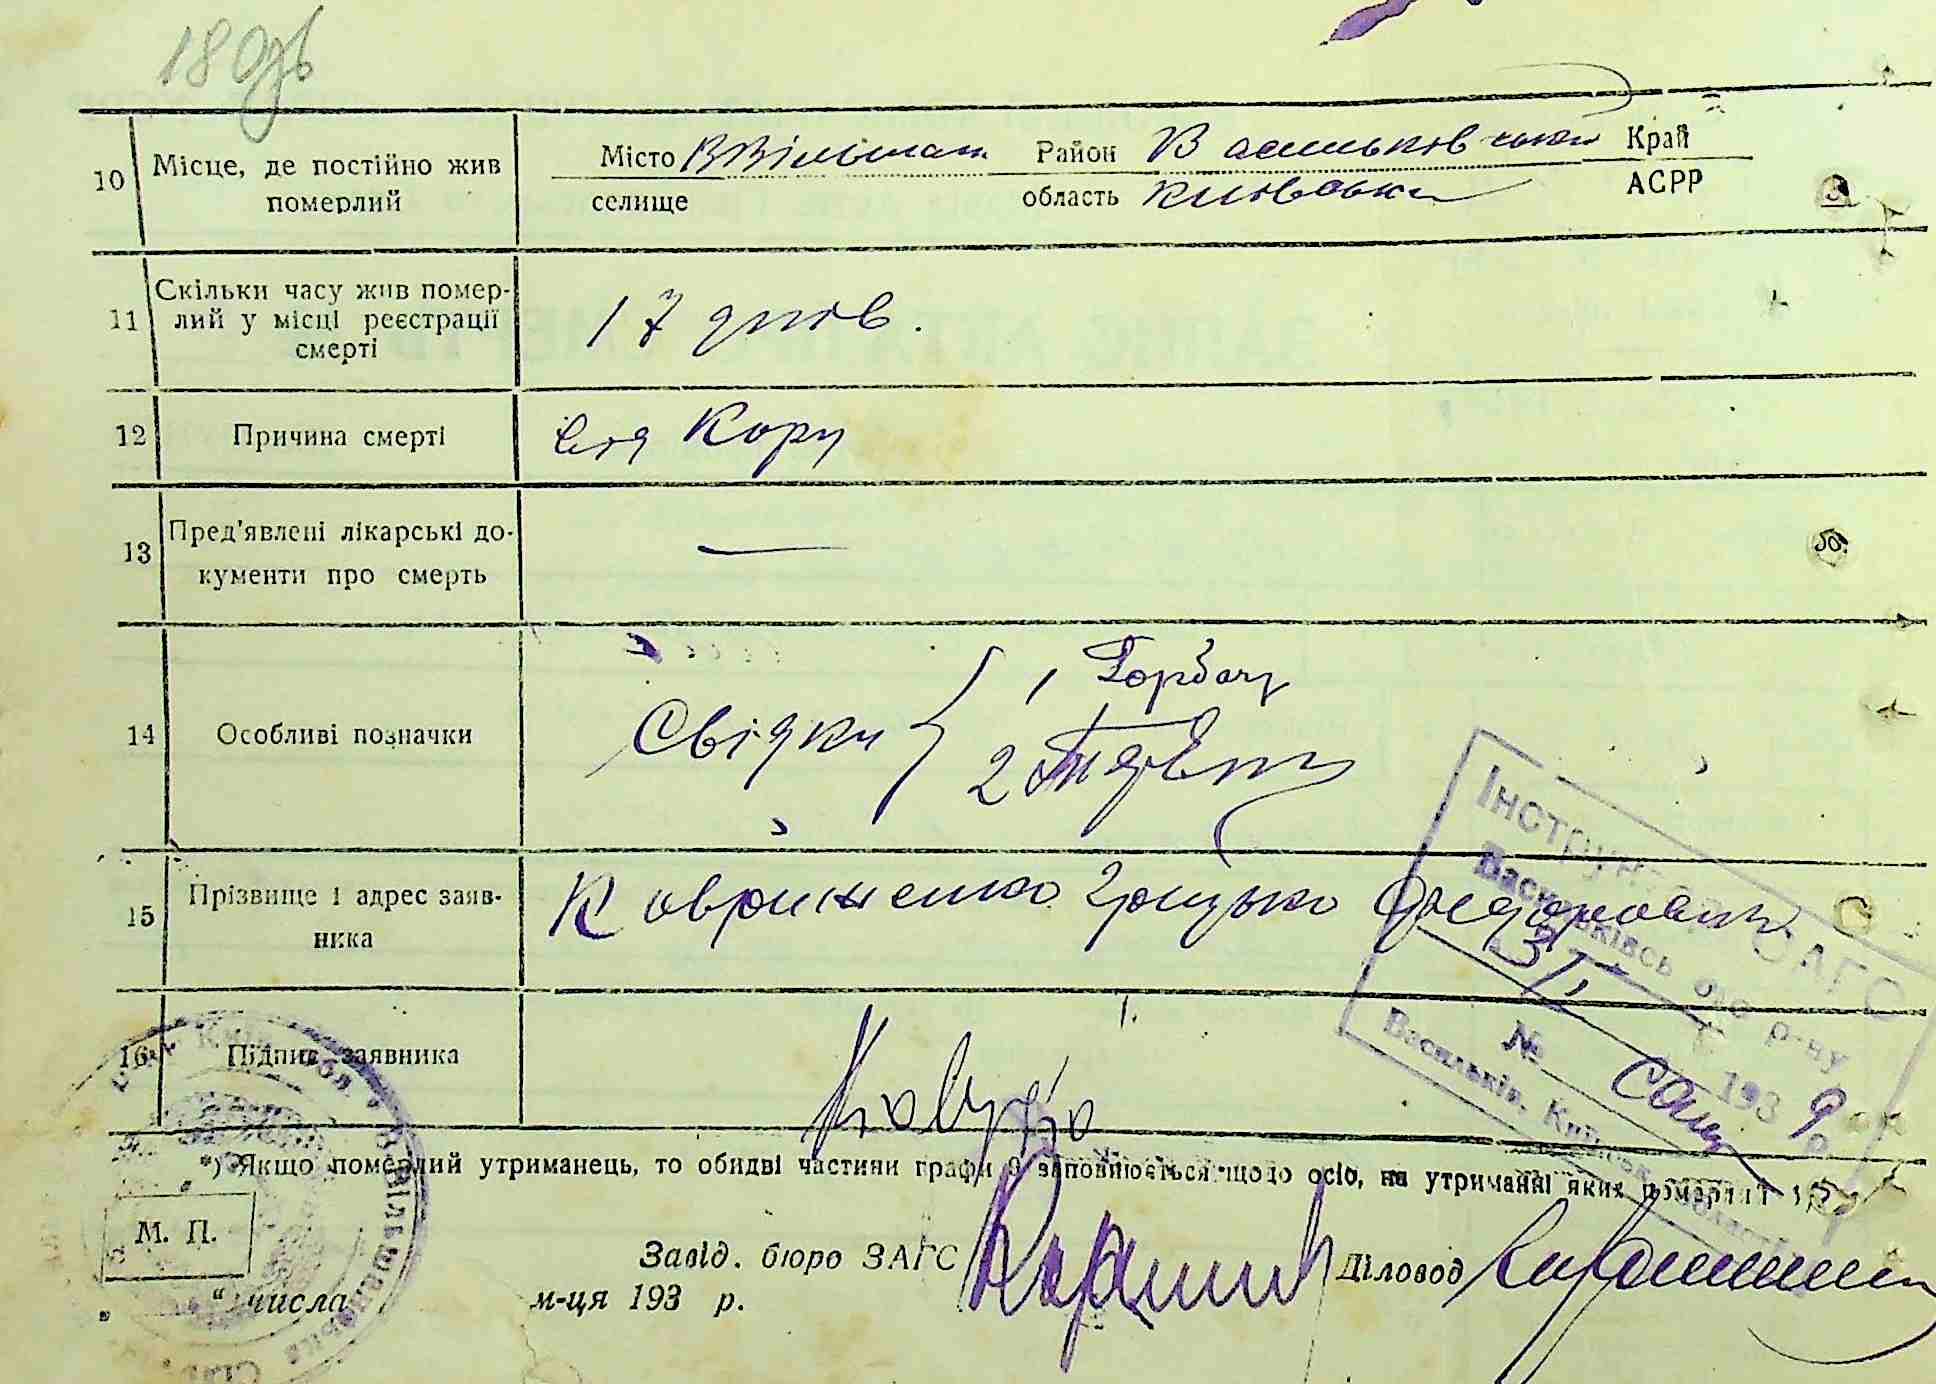 18
10 Місце, де постійно жив померлий
Місто селище В Вільшан Район Васильковський область Київська Край АСРР
11 Скільки часу жив померлий у місці реєстрації смерті
17 днів.
12 Причина смерті
від Кору
13 Пред'явлені лікарські документи про смерть
—
14 Особливі позначки
Свідки { 1 Горбач
2
15 Прізвище і адрес заявника
Ковриженко Грицько Федорович
16 Підпис заявника
*) Якщо померлий утриманець, то обидві частини графи 9 заповнюється щодо осіб, на утриманні яких померлий
М. П.
Завід. бюро ЗАГС
Діловод
„ “ числа м-ця 193 р.
Інструк ЗАГС
Васильківсь ого р-ну
3/І 1939 р.
№
Васильків, Київськ